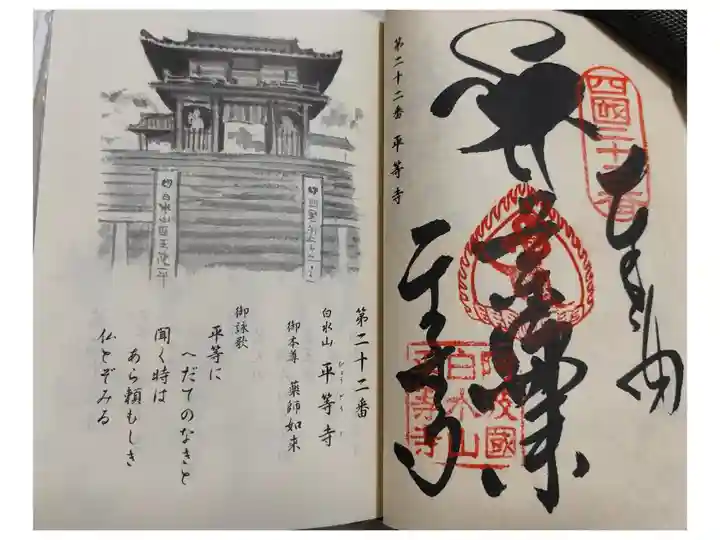 第二十二番 平等寺
四國二十二番
奉納
平等寺
阿波國
白水山
平等寺
白水山医王院平
第二十二番
白水山 平等寺
びょうどうじ
御本尊 薬師如来
御詠歌
平等に
へだてのなきと
聞く時は
あら頼もしき
仏とぞみる